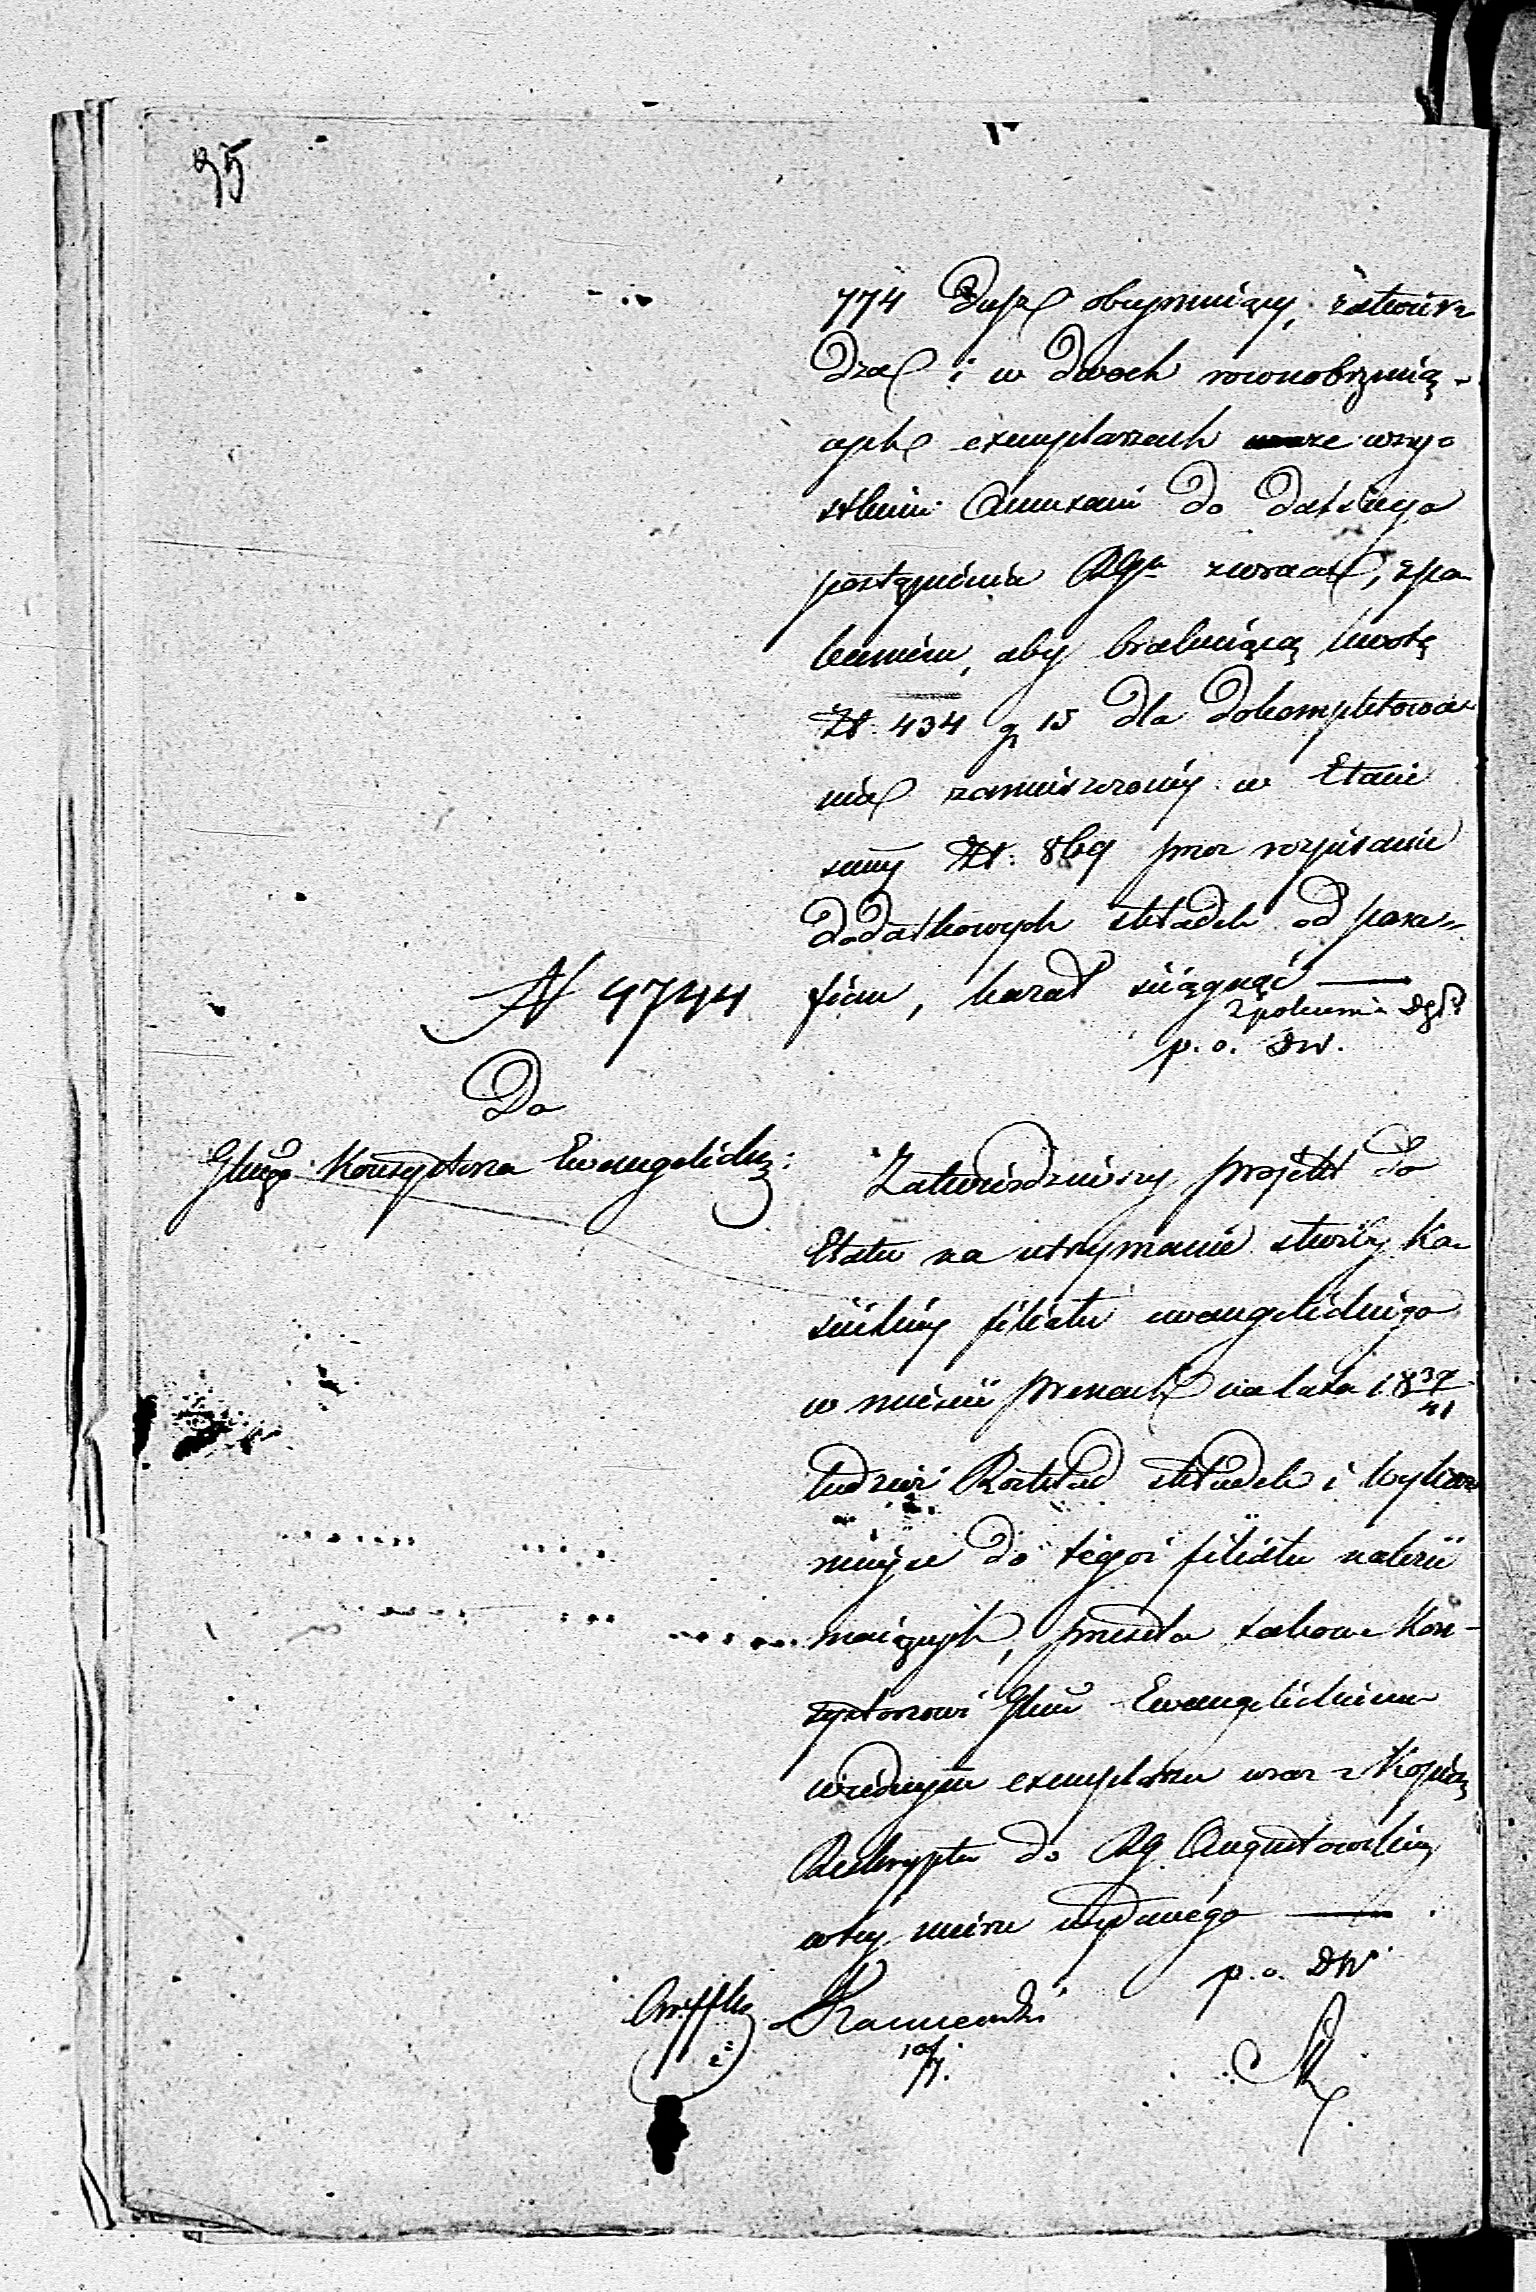 95
774 Dusz obeymuiący, zatwier-
dza i w dwoch rownobrzmią-
cych exemplarzach wraz ze wszy-
stkiemi Annexami do dalszego
postąpienia RGu zwraca, z po-
leceniem, aby brakuiącą kwotę
Zł. 434 gr 15 dla dokompletowa-
nia zamieszczoney w Etacie
summy Zł. 869 przez rozpisanie
dodatkowych składek od para-
fian, kazał ściągnąć —
Z polecenia
p. o. DW.
N 4744
Do
Glnego Konsystorza Ewangelickiego
Zatwierdziwszy projekt do
Etatu na utrzymanie służby Ko-
ścielney filiału ewangelickiego
w mieście Prenach na lata 1839/41
tudzież Rozkład składek i Wykaz
mieysc do tegoż filiału należeć
maiących, przesyła takowe Kon-
systorzowi Glmu Ewangelickiemu
w iednym exemplarzu wraz z Kopią
Reskryptu do RG Augustowskiey
w tey mierze wydanego —
p. o. DW
10/7